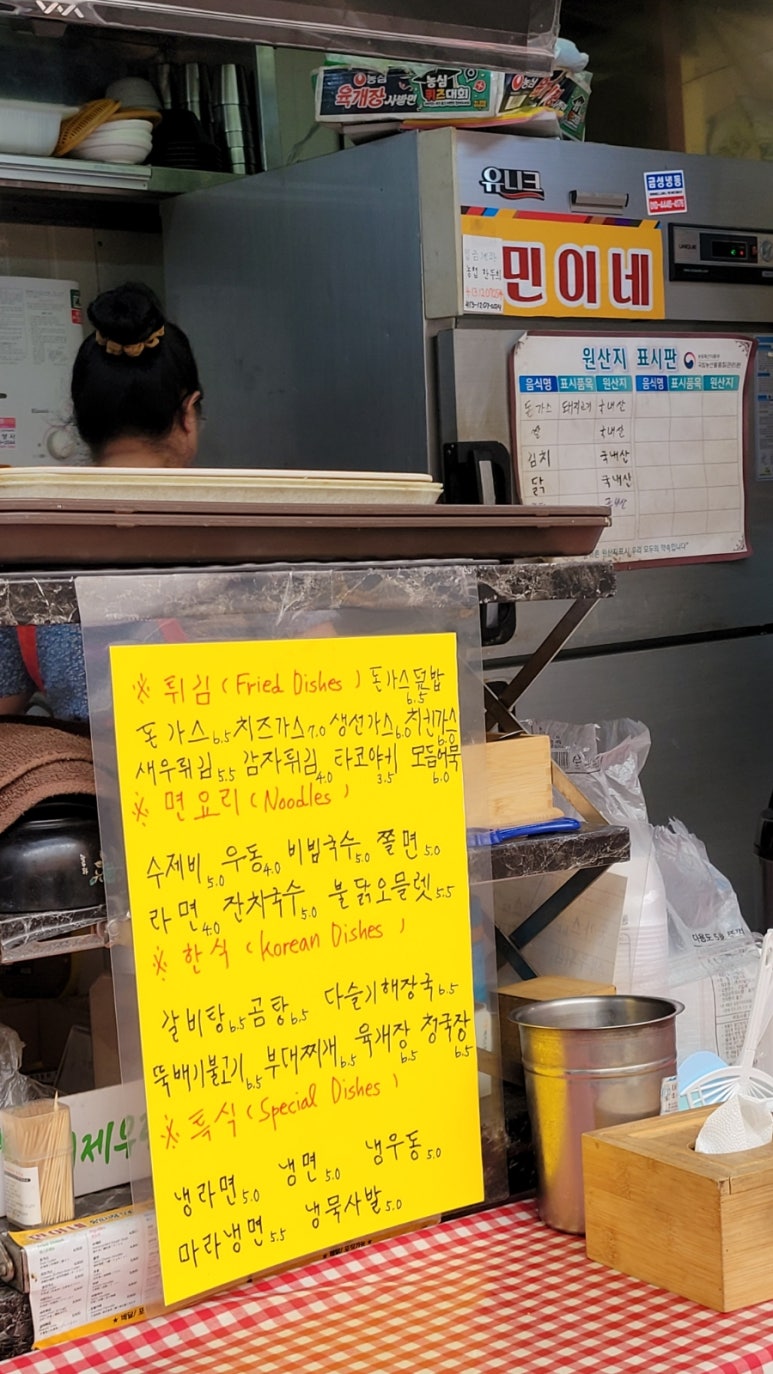 농심
육개장 사발면
농심
퀴즈대회
유니크
금성냉동
010-4440-4076
민이네
UNIQUE
원산지 표시판
음식명 표시품목 원산지 음식명 표시품목 원산지
돈가스 돼지고기 국내산
쌀 국내산
김치 국내산
닭 국내산
원산지표시, 우리 모두의 약속입니다"
※ 튀김 (Fried Dishes) 돈가스덮밥 6.5
돈가스 6.5 치즈가스 7.0 생선가스 6.0 치킨가스 6.0
새우튀김 5.5 감자튀김 4.0 타코야키 3.5 모듬어묵 6.0
※ 면요리 (Noodles)
수제비 5.0 우동 4.0 비빔국수 5.0 쫄면 5.0
라면 4.0 잔치국수 5.0 불닭오믈렛 5.5
※ 한식 (Korean Dishes)
갈비탕 6.5 곰탕 6.5 다슬기해장국 6.5
뚝배기불고기 6.5 부대찌개 6.5 육개장 6.5 청국장 6.5
※ 특식 (Special Dishes)
냉라면 5.0 냉면 5.0 냉우동 5.0
마라냉면 5.5 냉묵사발 5.0
제우
민이네